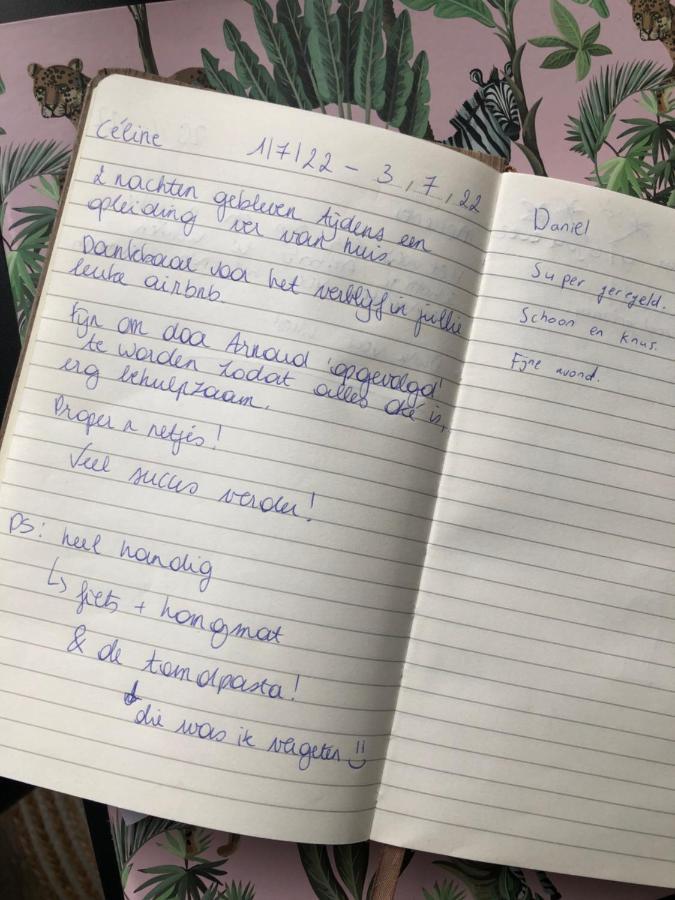 Céline
1/7/22 - 3,7,22
2 nachten gebleven tijdens een
opleiding ver van huis.
Dankbaar voor het verblijf in jullie
leuke airbnb
Fijn om door Arnoud 'opgevolgd'
te worden zodat alles oké is,
erg behulpzaam.
Proper n netjes!
Veel succes verder!
PS: heel handig
↳ fiets + hangmat
& de tandpasta!
die was ik vergeten
Daniel
Super geregeld.
Schoon en knus.
Fijne avond.